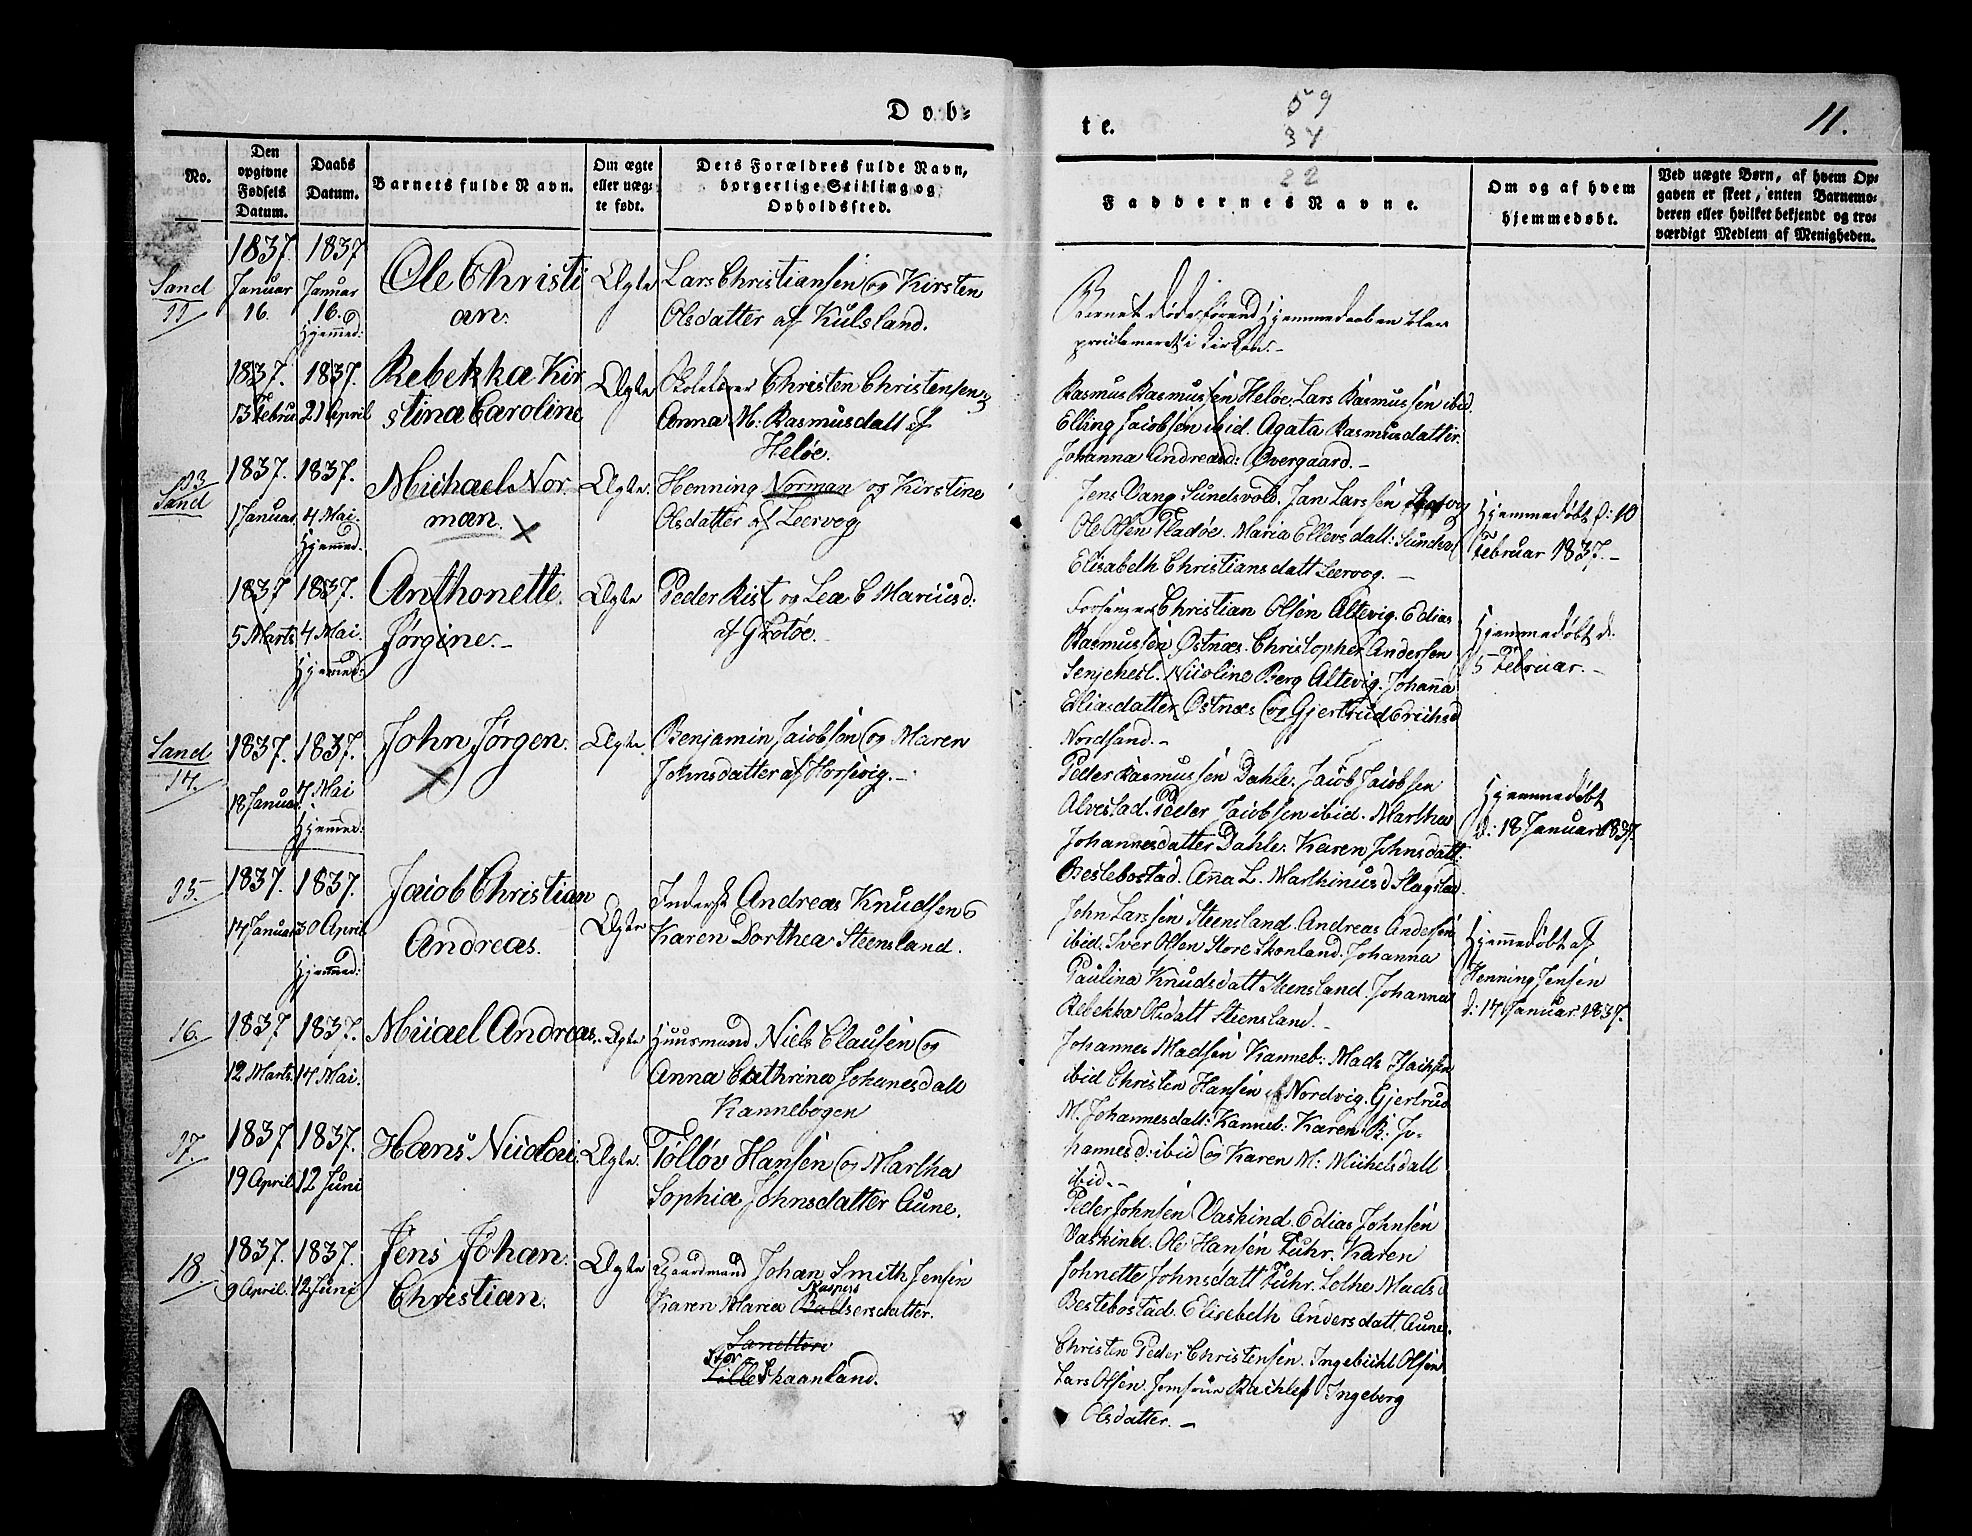 Døb-
te.
59
37
22
11.
No.
Den opgivne Fødsels Datum.
Daabs Datum.
Barnets fulde Navn.
Om ægte eller uægte født.
Dets Forældres fulde Navn,
borgerlige Stilling og
Opholdssted.
Faddernes Navne.
Om og af hvem
hjemmedøbt.
Ved uægte Børn, af hvem Op-
gaven er skeet, enten Barnemo-
deren eller hvilket bekjendt og tro-
værdigt Medlem af Menigheden.
Sand
11
1837. Januar 16.
1837 Januar 16. Hjemmed:
Ole Christi
an.
Ægte
Lars Christiansen og Kirsten
Olsdatter af Kulsland.
Barnet døde førend Hjemmedaaben blev
proclameret i Kirken.-
1837. 13 Februar
1837. 21 April
Rebekka Kir
stina Caroline
Ægte
Christen Christensen
Anna M: Rasmusdatt af
Heløe.
Rasmus Rasmussen Heløe. Lars Rasmussen ibid.
Elling Jacobsen ibid. Agata Rasmusdatter.
Johanna Andreasd: Øvergaard.-
13
Sand
1837. 1 Januar
1837. 4 Mai. Hjemmed.
Michael Nor
man. X
Ægte.
Henning Norman og Kirstine
Olsdatter af Leervog
Jens Vang Sundsvold. Jan Larssen
Ole Olsen Fladøe. Maria Ellersdatt:
Elisabeth Christiansdatt Leervog.-
Hjemmedøbt d: 10
Februar 1837.-
1837 5 Marts
1837. 4 Mai. Hjemmed:
Anthonette
Jørgine.-
Ægte
Peder Rist og Lea C Mariusd:
af Grotøe.-
Christian Olsen Altevig. Edias
Rasmussen Østnæs. Christopher Andersen
Senjehest. Nicoline Berg Altevig. Johanna
Eliasdatter Østnæs og Gjertrud Erichsd
Nordsand.-
Hjemmedøbt d.
5 Februar.-
Sand
14.
1837. 18 Januar.
1837. 7 Mai Hjemmed:
John Jørgen.
X
Ægte.
Benjamin Jacobsen og Maren
Johnsdatter af Horsevig.-
Peder Rasmussen Dahle. Jacob Jacobsen
Alvestad. Peder Jacobsen ibid. Martha
Johannesdatter Dahle. Karen Johnsdatt:
Bestebostad. Anna L. Marthinusd Slagstad.
Hjemmedøbt
d: 18 Januar 1837.
15.
1837. 14 Januar
1837. 30 April Hjemmed:
Jacob Christian
Andreas.
Ægte
Inderst Andreas Knudsen &
Karen Dorthea Steensland.
John Larssen Steensland. Andreas Andersen
ibid. Iver Olsen Store Skonland. Johanna
Paulina Knudsdatt Steensland. Johanna
Rebekka Olsdatt Steensland.-
Hjemmedøbt af
Henning Jensen
d: 14 Januar 1837.
16.
1837 12 Marts.
1837. 14 Mai.
Micael Andreas.
Ægte
Huusmand Niels Clausen og
Anna Cathrina Johanesdatt
Kannebogen
Johannes Madsen Kanneb: Mads
ibid Christen Hansen af Nordvig. Gjertrud
M. Johannesdatt: Kanneb: Karen B: Jo-
hannesd: ibid og Karen M: Michelsdatt
ibid.-
17.
1837 19 April
1837. 12 Juni
Hans Nicolai
Ægte.
Tølløv Hansen og Martha
Sophia Johnsdatter Aune.
Peder Johnsen Vaskind. Edias Johnsen
Vaskind. Ole Hansen Fuhr. Karen
Johnette Johnsdatt Fuhr. Lethe Madsd
Bestebostad. Elisebeth Andersdatt. Aune.
18
1837. 9 April.
1837. 12 Juni
Jens Johan
Christian.
Ægte
Gaardmand Johan Smith Jensen
Kaspers
Karen Maria Baltsersdatter.
Sanettøre
Stor
Lille Skaanland.
Christen Peder Christensen. Ingebricht Olsen
Lars Olsen. Jomfrue Rachlef Ingeborg
Olsdatter.-